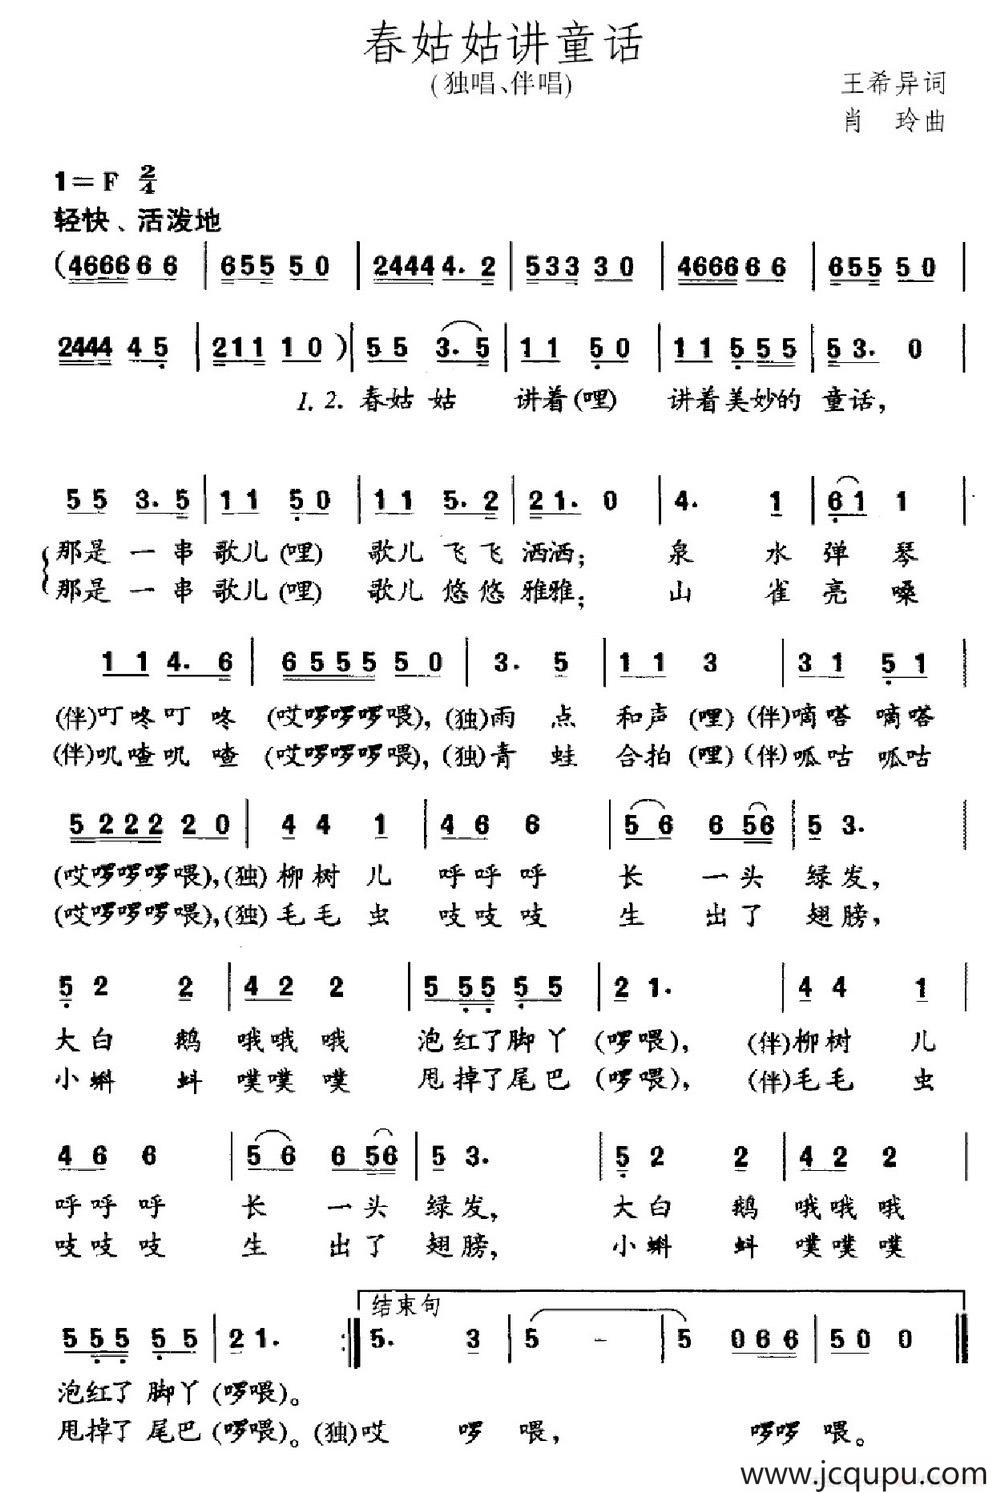 春姑姑讲童话
(独唱、伴唱)
王希异词
肖 玲曲
1=F 2/4
轻快、活泼地
(4666 6 6 | 655 5 0 | 2444 4. 2 | 533 3 0 | 4666 6 6 | 655 5 0 |
2444 4 5 | 211 1 0 ) | 5 5 3. 5 | 1 1 5 0 | 1 1 5 5 5 | 5 3. 0 |
1. 2. 春姑 姑 讲着(哩) 讲着美妙的 童话,
5 5 3. 5 | 1 1 5 0 | 1 1 5. 2 | 2 1. 0 | 4. 1 | 6 1 1 |
那是 一 串 歌儿(哩) 歌儿 飞飞 洒洒; 泉 水 弹 琴
那是 一 串 歌儿(哩) 歌儿 悠悠 雅雅; 山 雀 亮 嗓
1 1 4. 6 | 6 5 5 5 5 0 | 3. 5 | 1 1 3 | 3 1 5 1 |
(伴)叮咚叮 咚 (哎啰啰啰喂), (独)雨 点 和声(哩) (伴)嘀嗒 嘀嗒
(伴)叽喳叽 喳 (哎啰啰啰喂), (独)青 蛙 合拍(哩) (伴)呱咕 呱咕
5 2 2 2 2 0 | 4 4 1 | 4 6 6 | 5 6 6 5 6 | 5 3. |
(哎啰啰啰喂),(独)柳树 儿 呼呼呼 长 一头 绿发,
(哎啰啰啰喂),(独)毛毛 虫 吱吱吱 生 出了 翅膀,
5 2 2 | 4 2 2 | 5 5 5 5 5 | 2 1. | 4 4 1 |
大白 鹅 哦哦哦 泡红了脚丫 (啰喂), (伴)柳树 儿
小蝌 蚪 噗噗噗 甩掉了尾巴 (啰喂), (伴)毛毛 虫
4 6 6 | 5 6 6 5 6 | 5 3. | 5 2 2 | 4 2 2 |
呼呼呼 长 一头 绿发, 大白 鹅 哦哦哦
吱吱吱 生 出了 翅膀, 小蝌 蚪 噗噗噗
结束句
5 5 5 5 5 | 2 1. :‖ 5. 3 | 5 - | 5 0 6 6 | 5 0 0 ‖
泡红了 脚丫 (啰喂)。
甩掉了 尾巴 (啰喂)。(独)哎 啰 喂, 啰啰 喂。
www.jcqupu.com